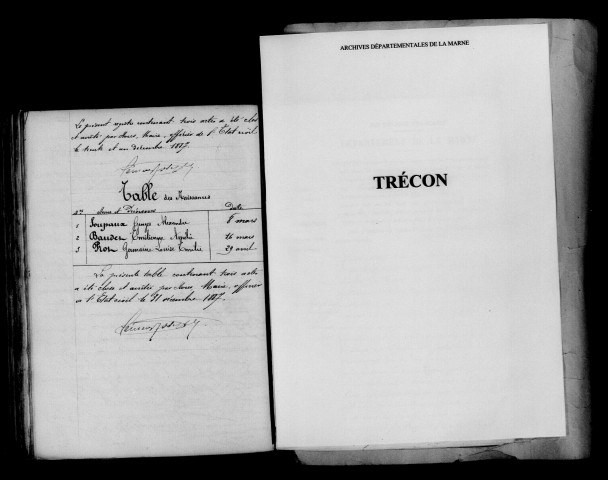 Le présent registre contenant trois actes a été clos
et arrêté par nous, Maire, officier de l'État civil
le trente et un décembre 1887.
Table des Naissances
Nos Noms et Prénoms Date
1 Georges Alexandre 8 mars
2 Baudet Émilienne 16 mars
3 Germaine Louise Émilie 29 avril
La présente table contenant trois actes
a été close et arrêtée par nous, Maire, officier
de l'État civil le 31 décembre 1887.
ARCHIVES DÉPARTEMENTALES DE LA MARNE
TRÉCON